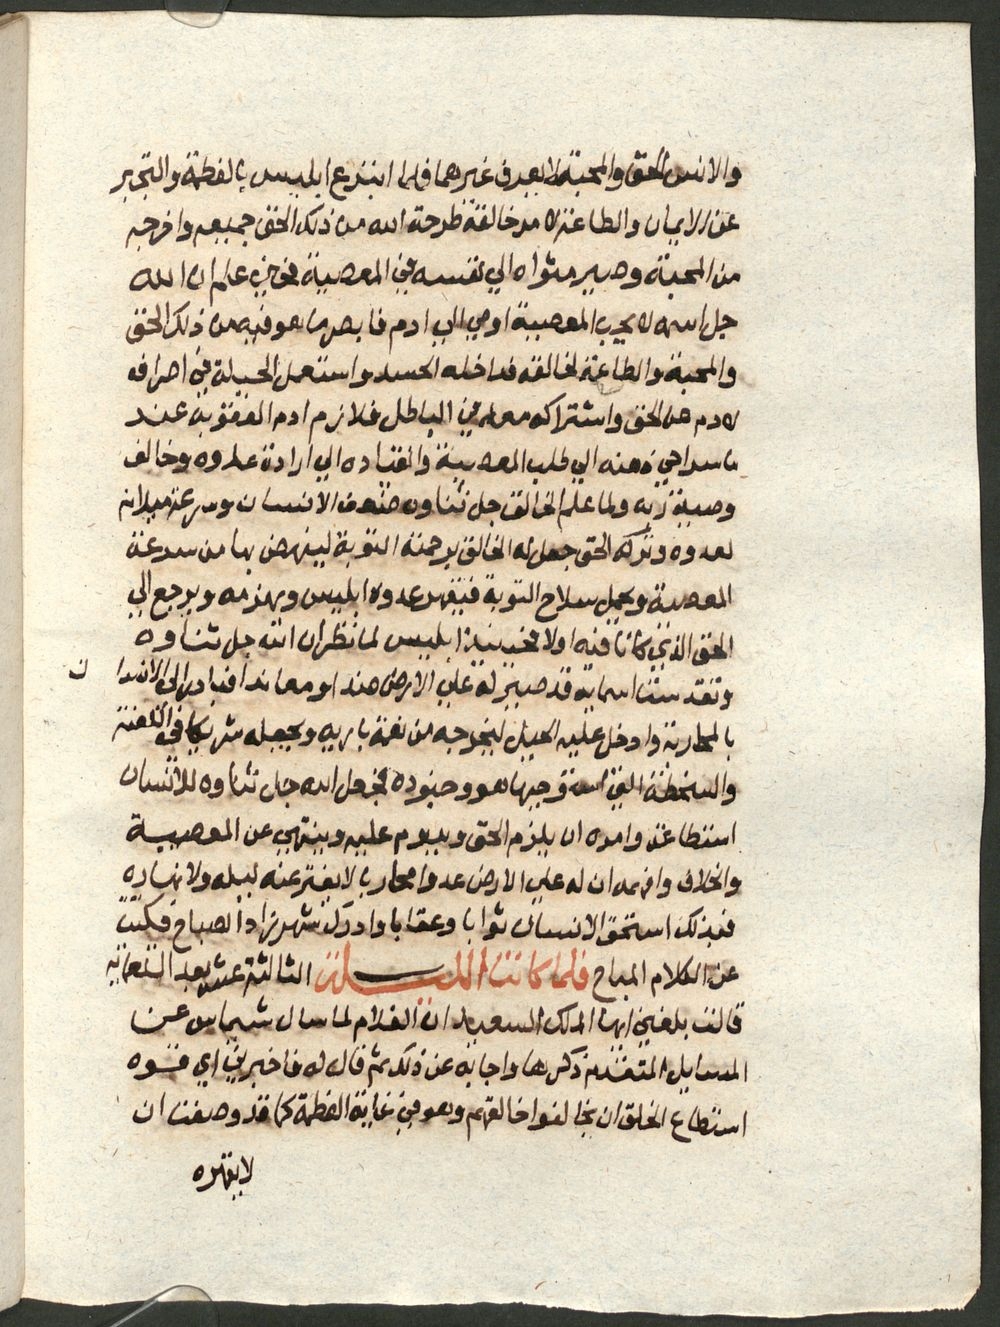 والانس الحق والمحبة لا بعدف غيرهما فلما ابتدع ابليس بالفطمة والتجبر
عن الايمان والطاعة لامر خالقه طرحه الله من ذلك الحق جميعه واخرجه
من المحبة وصير مثواه الي نفسه في المعصية فحين علم ان الله
جل اسمه لا يحب المعصية اوحي الي ادم فابصر ما هو فيه من ذلك الحق
والمحبة والطاعة لخالقه فداخله الحسد واستعمل الحيلة في اصرافه
لادم عن الحق واشتراكه معه في الباطل فلازم ادم العقوبة عند
ما سراحي ذهنه الي طلب المعصية وانقياده الي ارادة عدوه وخالف
وصية ربه ولما علم الخالق جل ثناوه ضعف الانسان وسرعة ميلانه
لعدوه وتركه الحق جعل له الخالق برحمته التوبة لينهض بها من سرعة
المعصية ويحمل سلاح التوبة فيقهر عدوه ابليس ويهزمه ويرجع الي
الحق الذي كانا فيه اولا فحينيذ ابليس لما نظر ان الله جل ثناوه
وتقدست اسمايه قد صير له علي الارض ضدا ومعاندا فبادر الي الانسا ن
بالمحاربة وادخل عليه الحيل ليخرجه من نعمة باريه ويجعله شريكا في اللعنة
والسخطة التي استوجبها هو وجنوده فجعل الله جل ثناوه للانسان
استطاعة وامره ان يلزم الحق ويدوم عليه وينتهي عن المعصية
والخلاف وافهمه ان له علي الارض عدوا محاربا لا يفتر عنه ليله ولا نهاره
فبذلك استحق الانسان ثوابا وعقابا وادرك شهرزاد الصباح فسكتت
عن الكلام المباح فلما كانت الليلة الثالثة عشر بعد التسعمايه
قالت بلغني ايها الملك السعيد ان الغلام لما سال شيماس عن
المسايل المتقدم ذكرها واجابه عن ذلك ثم قال له فاخبرني اي قوه
استطاع الخلق ان يخالفوا خالقهم وهو في غاية العظمة كما قد وصفت ان
لا يقهره